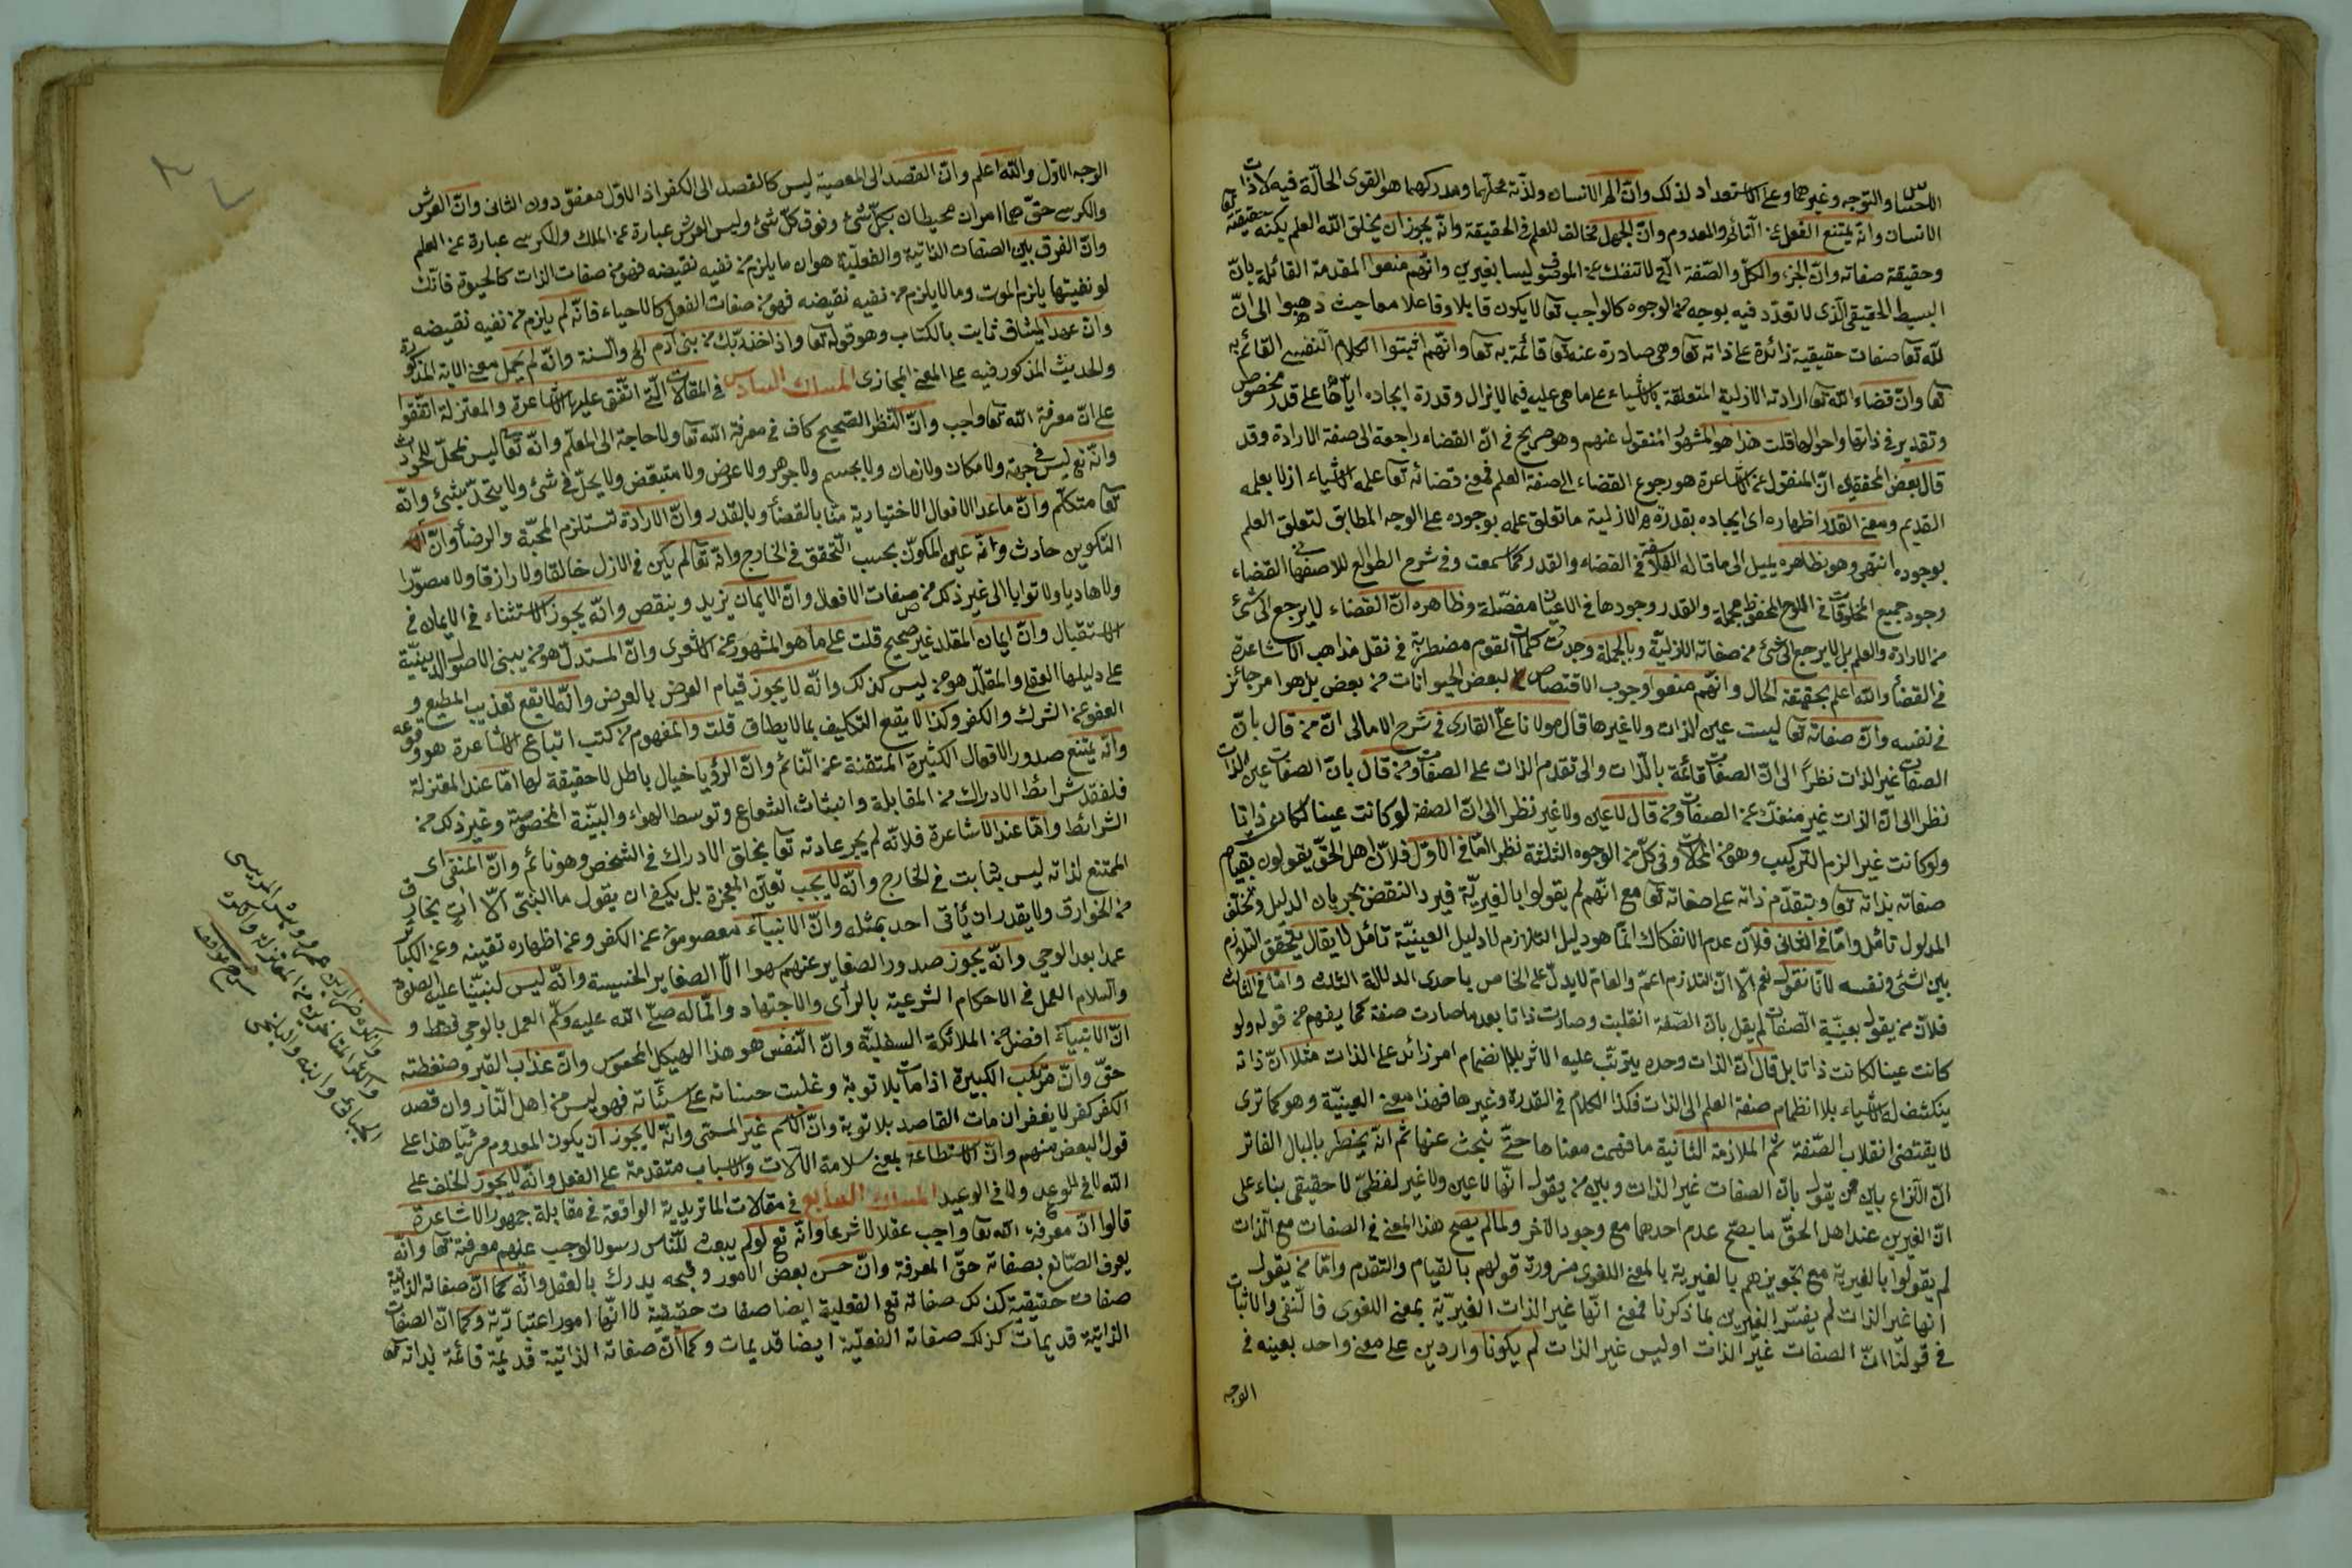 الاحساس والتوجه وغيرهما وعلى الاستعداد لذلك وانّ الم الانسان ولذّته محلّهما ومدركهما هو القوى الحالّة فيه لا ذات
الانسان وانّه يمتنع الفعل عن التأثر والمعدوم وانّ الجهل مخالف للعلم فى الحقيقة وانّه يجوز ان يخلق الله العلم بكنه حقيقته تعا
وحقيقة صفاته وانّ الجزء والكلّ والصّفة الّتى لا تنفك عن الموصوف ليسا بغيرين وانّهم منعوا المقدمة القائلة بانّ
البسيط الحقيقى الّذى لا تعدّد فيه بوجه من الوجوه كالواجب تعا لا يكون قابلا وفاعلا معا حيث ذهبوا الى انّ
للّه تعا صفات حقيقية زائدة على ذاته تعا وهى صادرة عنه تعا قائمة به تعا وانّهم اثبتوا الكلام النّفسى القائم به
تعا وانّ قضاء الله تعا ارادته الازلية المتعلقة بالاشياء على ما هى عليه فيما لا يزال وقدرة ايجاده ايّاها على قدر مخصوص
وتقدير فى ذاتها واحوالها قلت هذا هو المشهور المنقول عنهم وهو صريح فى انّ القضاء راجعة الى صفة الارادة وقد
قال بعض المحققين انّ المنقول عن الاشاعرة هو رجوع القضاء الى صفة العلم فمعنى قضائه تعا علمه الاشياء ازلا بعلمه
القديم ومعنى القدر اظهاره اى ايجاده بقدرته الازلية ما تعلق علمه بوجوده على الوجه المطابق لتعلق العلم
بوجوده انتهى وهو بظاهره يميل الى ما قاله الفلاسفة فى القضاء والقدر كما سمعت وفى شرح الطوالع للاصفهانى القضاء
وجود جميع المخلوقات فى اللوح المحفوظ مجملة والقدر وجودها فى الاعيان مفصّلة وظاهره انّ القضاء لا يرجع الى شئ
من الارادة والعلم بل لا يرجع الى شئ من صفاته الازليّة وبالجملة وجدت كلمات القوم مضطربة فى نقل مذاهب الاشاعرة
فى القضاء والله اعلم بحقيقة الحال وانّهم منعوا وجوب الاقتصاص لبعض الحيوانات من بعض بل هو امر جائز
فى نفسه وانّ صفاته تعا ليست عين الذات ولا غيرها قال مولانا علىّ القارى فى شرح الامالى انّ من قال بانّ
الصفات غير الذات نظراً الى انّ الصفات قائمة بالذّات والى تقدم الذات على الصفات ومن قال بانّ الصفات عين الذات
نظرا الى انّ الذات غير منفك عن الصفات ومن قال لا عين ولا غير نظر الى انّ الصفة لو كانت عينا لكانت ذاتا
ولو كانت غير الزم التركيب وهو من المحالات وفى كلّ من الوجوه الثلثة نظر امّا فى الاوّل فلانّ اهل الحقّ يقولون بقيام
صفاته بذاته تعا وبتقدّم ذاته على صفاته تعا مع انّهم لم يقولوا بالغيريّة فيرد النقض بجريان الدليل وتخلّف
المدلول تأمّل وامّا فى الثانى فلانّ عدم الانفكاك انّما هو دليل التلازم لا دليل العينيّة تأمّل لا يقال يتحقق التلازم
بين الشئ ونفسه لانّا نقول نعم الّا انّ التلازم اعمّ والعام لا يدلّ على الخاص باحدى الدلالة الثلث وامّا فى الثالث
فلانّ من يقول بعينيّة الصّفات لم يقل بانّ الصّفة انقلبت وصارت ذاتا بعد ما صارت صفة كما يفهم من قوله ولو
كانت عينا لكانت ذاتا بل قال انّ الذات وحده يترتّب عليه الاثر بلا انضمام امر زائد على الذات مثلا انّ ذاته
ينكشف له الاشياء بلا انضمام صفة العلم الى الذات فكذا الكلام فى القدرة وغيرها فهذا معنى العينيّة وهو كما ترى
لا يقتضى انقلاب الصّفة ثم الملازمة الثانية ما فهمت معناها حتّى نبحث عنها ثم انّه يخطر بالبال الفاتر
انّ النّزاع بين من يقول بانّ الصفات غير الذات وبين من يقول انّها لا عين ولا غير لفظىّ لا حقيقى بناء على
انّ الغيرين عند اهل الحقّ ما يصّح عدم احدهما مع وجود الآخر ولمّا لم يصح هذا المعنى فى الصفات مع الذات
لم يقولوا بالغيرية مع تجويزهم بالغيرية بالمعنى اللغوى ضرورة قولهم بالقيام والتقدم وامّا من يقول
انها غير الذات لم يفسّر الغيرين بما ذكرنا فمعنى انّها غير الذات الغيريّة بمعنى اللغوى فالنّفى والاثبات
فى قولنا انّ الصفات غير الذات او ليس غير الذات لم يكونا واردين على معنى واحد بعينه فى
الوجه
الوجه الاوّل والله اعلم وانّ القصد الى المعصية ليس كالقصد الى الكفر اذ الاوّل معفوّ دون الثانى وانّ العرش
والكرسى حقّ هما امران محيطان بكلّ شئ وفوق كلّ شئ وليس العرش عبارة عن الملك والكرسى عبارة عن العلم
وانّ الفرق بين الصفات الذاتية والفعليّة هو ان ما يلزم من نفيه نقيضه فهو من صفات الذات كالحيوة فانّك
لو نفيتها يلزم الموت وما لا يلزم من نفيه نقيضه فهو من صفات الفعل كالاحياء فانّه لم يلزم من نفيه نقيضه
وانّ عهد الميثاق ثابت بالكتاب وهو قوله تعا واذ اخذ ربّك من بنى آدم الى والسنة وانّه لم يحمل معنى الاية المذكورة
والحديث المذكور فيه على المعنى المجازى المسلك السادس فى المقالات الّتى اتّفق عليها الاشاعرة والمعتزلة اتّفقوا
على انّ معرفة الله تعا واجب وانّ النّظر الصّحيح كاف فى معرفة الله تعا ولا حاجة الى المعلّم وانّه تعا ليس محلّ للحوادث
وانّه تع ليس فى جهة ولا مكان ولا زمان ولا بجسم ولا جوهر ولا عرض ولا متبعّض ولا يحلّ فى شئ ولا يتحدّ بشئ وانّه
تعا متكلّم وانّ ما عدا الافعال الاختيارية منّا بالقضاء وبالقدر وانّ الارادة تستلزم المحبّة والرضأ وانّ
التكوين حادث وانّه عين المكوّن بحسب التّحقق فى الخارج وانّه تعا لم يكن فى الازل خالقا ولا رازقا ولا مصوّرا
ولا هاديا ولا توابا الى غير ذلك من صفات الافعال وانّ الايمان يزيد وينقص وانّه يجوز الاستثناء فى الايمان فى
الاستقبال وانّ ايمان المقلد غير صحيح قلت على ما هو المشهور عن الاشعرى وانّ المستدلّ هو من يبنى الاصول الدينيّة
على دليلها العقلى والمقلّد هو من ليس كذلك وانّه لا يجوز قيام العرض بالعرض وانّه لا يقع تعذيب المطيع و
العفو عن الشرك والكفر وكذا لا يقع التكليف بما لا يطاق قلت والمفهوم من كتب اتباع الاشاعرة هو وقوعه
وانّه يمتنع صدور الافعال الكثيرة المتقنة عن النّائم وانّ الرؤيا خيال باطل لا حقيقة لها امّا عند المعتزلة
فلفقد شرائط الادراك من المقابلة وانبثاث الشعاع وتوسط الهواء والبنيّة المخصوصة وغير ذلك من
الشرائط وامّا عند الاشاعرة فلانّه لم يجر عادته تعا بخلق الادراك فى الشخص وهو نائم وانّ المنفى اى
الممتنع لذاته ليس بثابت فى الخارج وانّه لا يجب تعيّن المعجزة بل يكفى ان يقول ما النّبىّ الّا آت بخارق
من الخوارق ولا يقدر ان يأتى احد بمثله وانّ الانبياء معصومون عن الكفر وعن اظهاره تقيّة وعن الكبائر
عمدا بعد الوحى وانّه يجوز صدور الصغاير عنهم سهوا الّا الصغاير الخسيسة وانّه ليس لنبيّنا عليه الصلوة
والسلام العمل فى الاحكام الشرعيّة بالرأى والاجتهاد وانّما له صلّى الله عليه وسلّم العمل بالوحى فقط و
انّ الانبياء افضل من الملائكة السفليّة وانّ النّفس هو هذا الهيكل المحسوس وانّ عذاب القبر وضغطته
حقّ وانّ مرتكب الكبيرة اذا مات بلا توبة وغلبت حسناته على سيّئاته فهو ليس من اهل النّار وان قصد
الكفر كفر لا يغفر ان مات القاصد بلا توبة وانّ الاسم غير المسمّى وانّه لا يجوز ان يكون المعدوم مرئيّا هذا على
قول البعض منهم وانّ الاستطاعة بمعنى سلامة الآلات والاسباب متقدمة على الفعل وانّه لا يجوز الخلف على
الله لا فى الوعد ولا فى الوعيد المسلك السابع فى مقالات الماتريدية الواقعة فى مقابلة جمهور الاشاعرة
قالوا انّ معرفة الله تعا واجب عقلا لا شرعا وانّه تع لو لم يبعث للنّاس رسولا لوجب عليهم معرفته تعا وانّه
يعرف الصّانع بصفاته حقّ المعرفة وانّ حسن بعض الامور وقبحه يدرك بالعقل وانّه كما انّ صفاته الذاتية
صفات حقيقيّة كذلك صفاته تع الفعلية ايضا صفات حقيقية لا انّها امور اعتباريّة وكما انّ الصفات
الذاتيّة قديمات كذلك صفاته الفعليّة ايضا قديمات وكما انّ صفاته الذاتية قديمة قائمة بذاته تعا